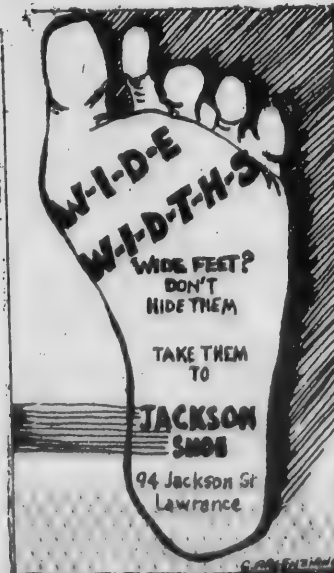 W-I-D-E
W-I-D-T-H-S
WIDE FEET?
DON'T
HIDE THEM
TAKE THEM
TO
JACKSON
SHOE
94 Jackson St
Lawrance